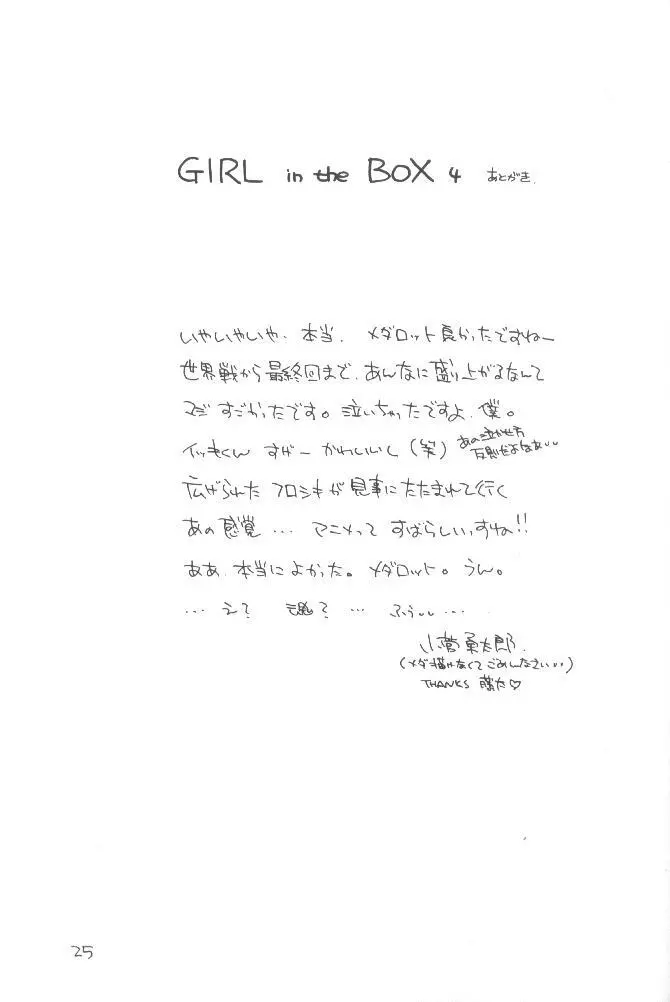 GIRL in the BOX 4 あとがき.
いやいやいや、本当、メダロット良かったですねー
世界戦から最終回まで、あんなに盛り上がるなんて
マジすごかったです。泣いちゃったですよ、僕。
イッキくん すげー かわいいし (笑)
あの泣かせ方
反則だよなぁ…
広げられた フロシキが見事にたたまれて行く
あの感覚 … アニメって すばらしいっすね!!
ああ、本当によかった。メダロット。うん。
… え? 魂? … ふぅ……
小菅勇太郎.
(メダ描けなくてごめんなさい…)
THANKS 藤た♡
25